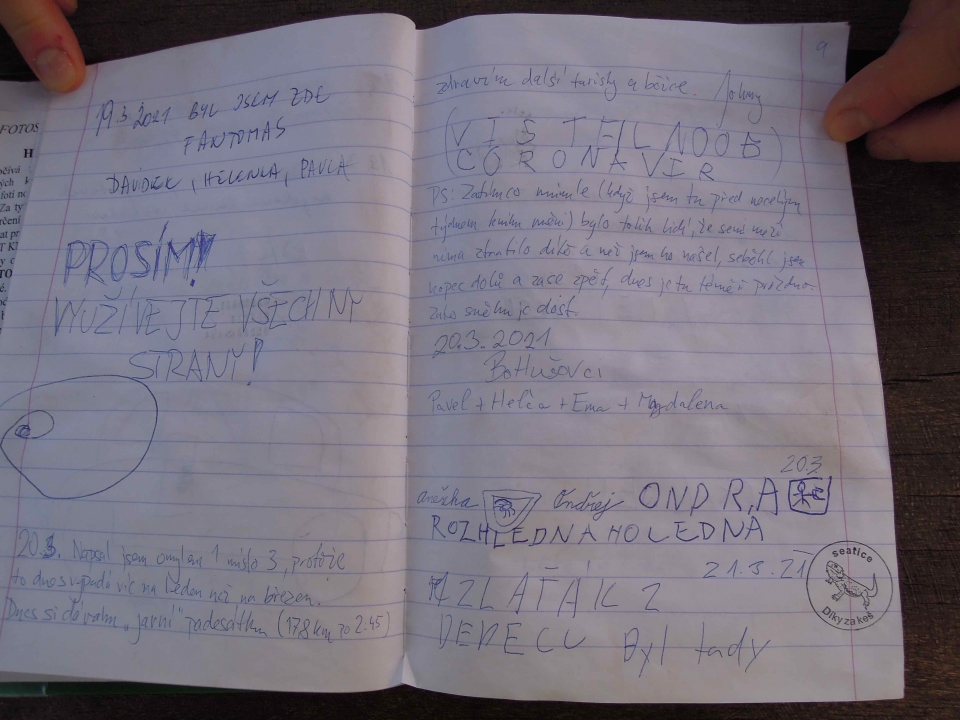 19.3.2021 BYL JSEM ZDE
FANTOMAS
DAUDEK, HELENKA, PAVLA
PROSÍM!
VYUŽÍVEJTE VŠECHNY
STRANY!
20.3. Napsal jsem omylem 1 místo 3, protože
to dnes vypadá víc na leden než na březen.
Dnes si dávám „jarní" padesátku (17,8 km za 2:45)
9
zdravím další turisty a běžce. Johny
CORONAVIR
PS: Zatímco minule (když jsem tu před necelým
týdnem knihu měnil) bylo tolik lidí, že se mi mezi
nima ztratilo dítě a než jsem ho našel, seběhl jsem
kopec dolů a zase zpět, dnes je tu téměř prázdno.
Zato sněhu je dost.
20.3.2021
Bohušovci
Pavel + Helča + Ema + Magdalena
20.3
Anežka Ondřej ONDRA
ROZHLEDNA HOLEDNÁ
21.3.21
ZLAŤÁK Z
DEDECU Byl tady
seatice
Díky za keš
FOTOS
H